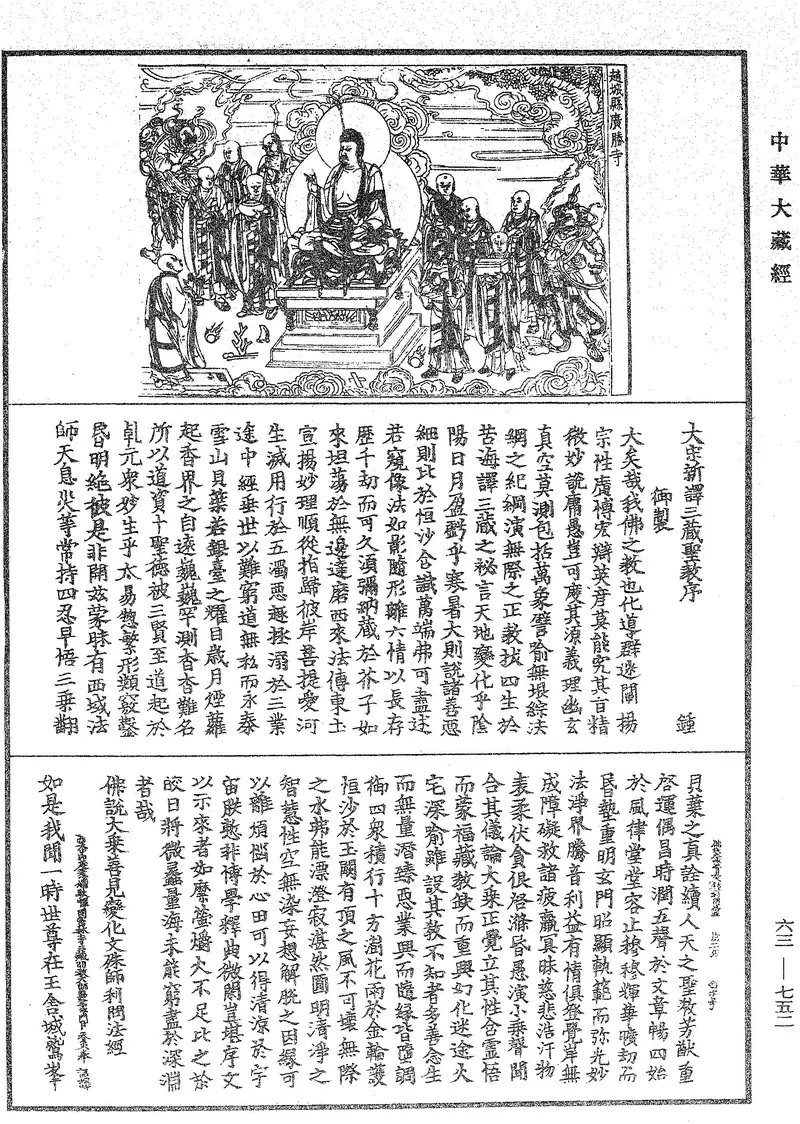 中華大藏經
趙城縣廣勝寺
大宋新譯三藏聖教序 鍾
御製
大矣哉我佛之教也化導群迷闡揚
宗性廣博宏辯英彦莫能究其旨精
微妙說庸愚豈可度其源義理幽玄
真空莫測包括萬象譬喻無垠綜法
網之紀綱演無際之正教拔四生於
苦海譯三藏之秘言天地變化乎陰
陽日月盈虧乎寒暑大則說諸善惡
細則比於恒沙含識萬端弗可盡述
若窺像法如影隨形離六情以長存
歷千劫而可久須彌納藏於芥子如
來坦蕩於無邊達磨西來法傳東土
宣揚妙理順從指歸彼岸菩提愛河
生滅用行於五濁惡趣拯溺於三業
途中經垂世以難窮道無私而永泰
雪山貝葉若銀臺之耀目歲月煙蘿
起香界之自遠巍巍罕測杳杳難名
所以道資十聖德被三賢至道起於
乹元衆妙生乎太易惣繁形類竅鑿
昏明絶彼是非開兹蒙昧有西域法
師天息灾等常持四忍早悟三乘翻
貝葉之真詮續人天之聖教芳猷重
啓運偶昌時潤五聲於文章暢四始
於風律堂堂容止穆穆輝華曠劫而
昏墊重明玄門昭顯軌範而弥光妙
法淨界騰音利益有情俱登覺岸無
成障礙救諸疲羸冥昧慈悲浩汗物
表柔伏貪佷啓滌昏愚演小乘聲聞
合其儀論大乘正覺立其性含靈悟
而蒙福藏教缺而重興幻化迷途火
宅深喻雖設其教不知者多善念生
而無量潜臻惡業興而隨緣皆墮調
御四衆積行十方澍花雨於金輪護
恒沙於玉闕有頂之風不可壞無際
之水弗能漂澄寂湛然圓明清淨之
智慧性空無染妄想解脫之因緣可
以離煩惱於心田可以得清涼於宇
宙朕慙非博學釋典微閑豈堪序文
以示來者如縻螢爝火不足比之於
皎日將微蠡量海未能窮盡於深淵
者哉
佛說大乘善見變化文殊師利問法經
如是我聞一時世尊在王舍城鷲峯
六三—七五二